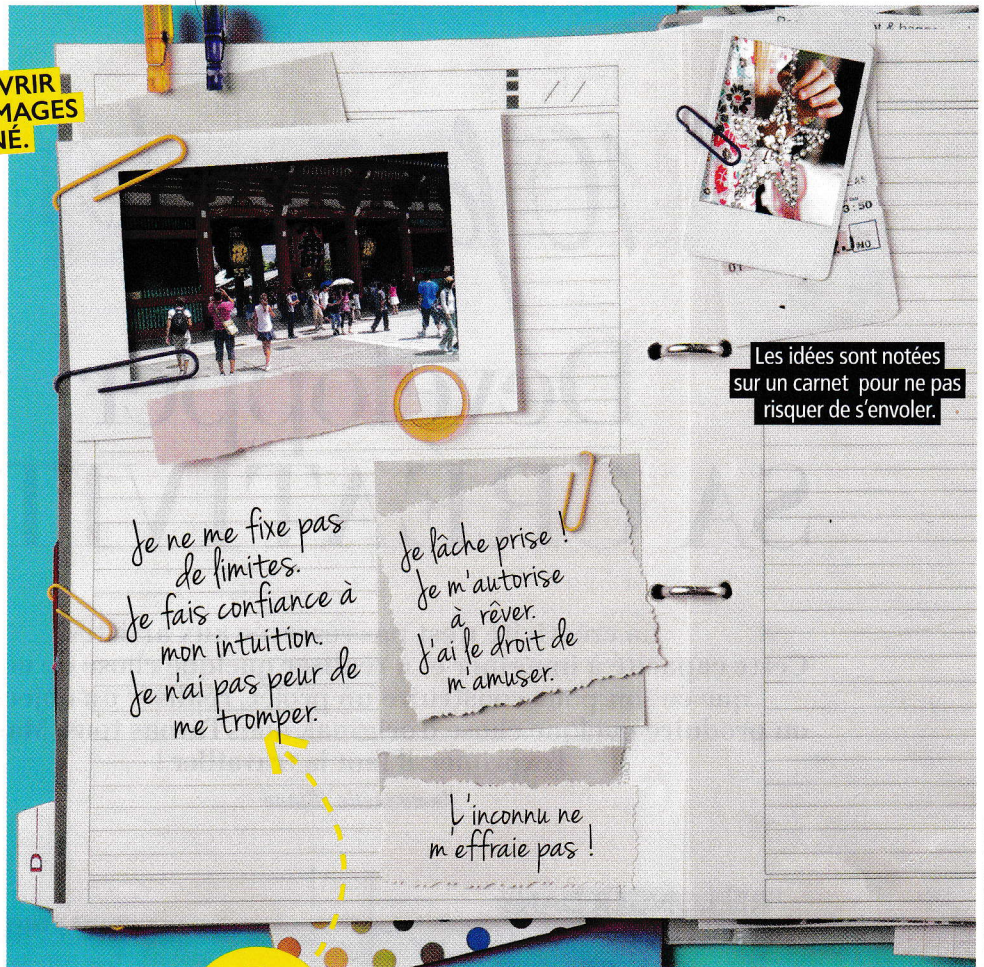 VRIR
MAGES
NÉ.
3:50
01
Les idées sont notées
sur un carnet pour ne pas
risquer de s'envoler.
Je ne me fixe pas
de limites.
Je fais confiance à
mon intuition.
Je n'ai pas peur de
me tromper.
Je lâche prise !
Je m'autorise
à rêver.
J'ai le droit de
m'amuser.
L'inconnu ne
m'effraie pas !
D